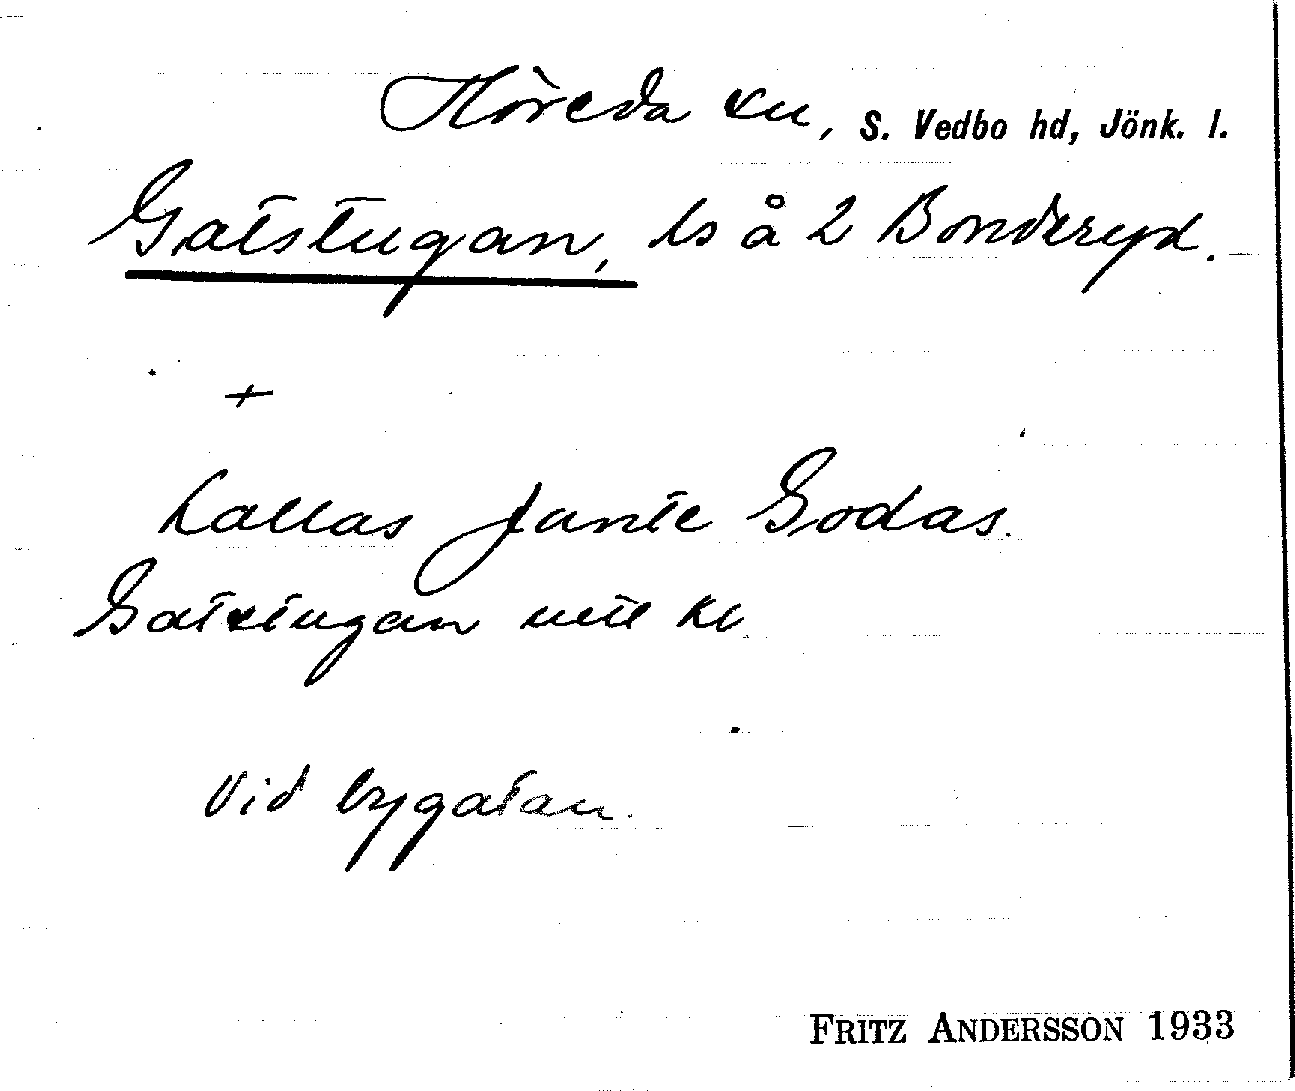 Höreda sn, S. Vedbo hd, Jönk. l.
Gatstugan, ls å 2 Bonderyd.
+
Kallas Jante Godas.
Gatstugan utt kl
Vid bygatan.
FRITZ ANDERSSON 1933